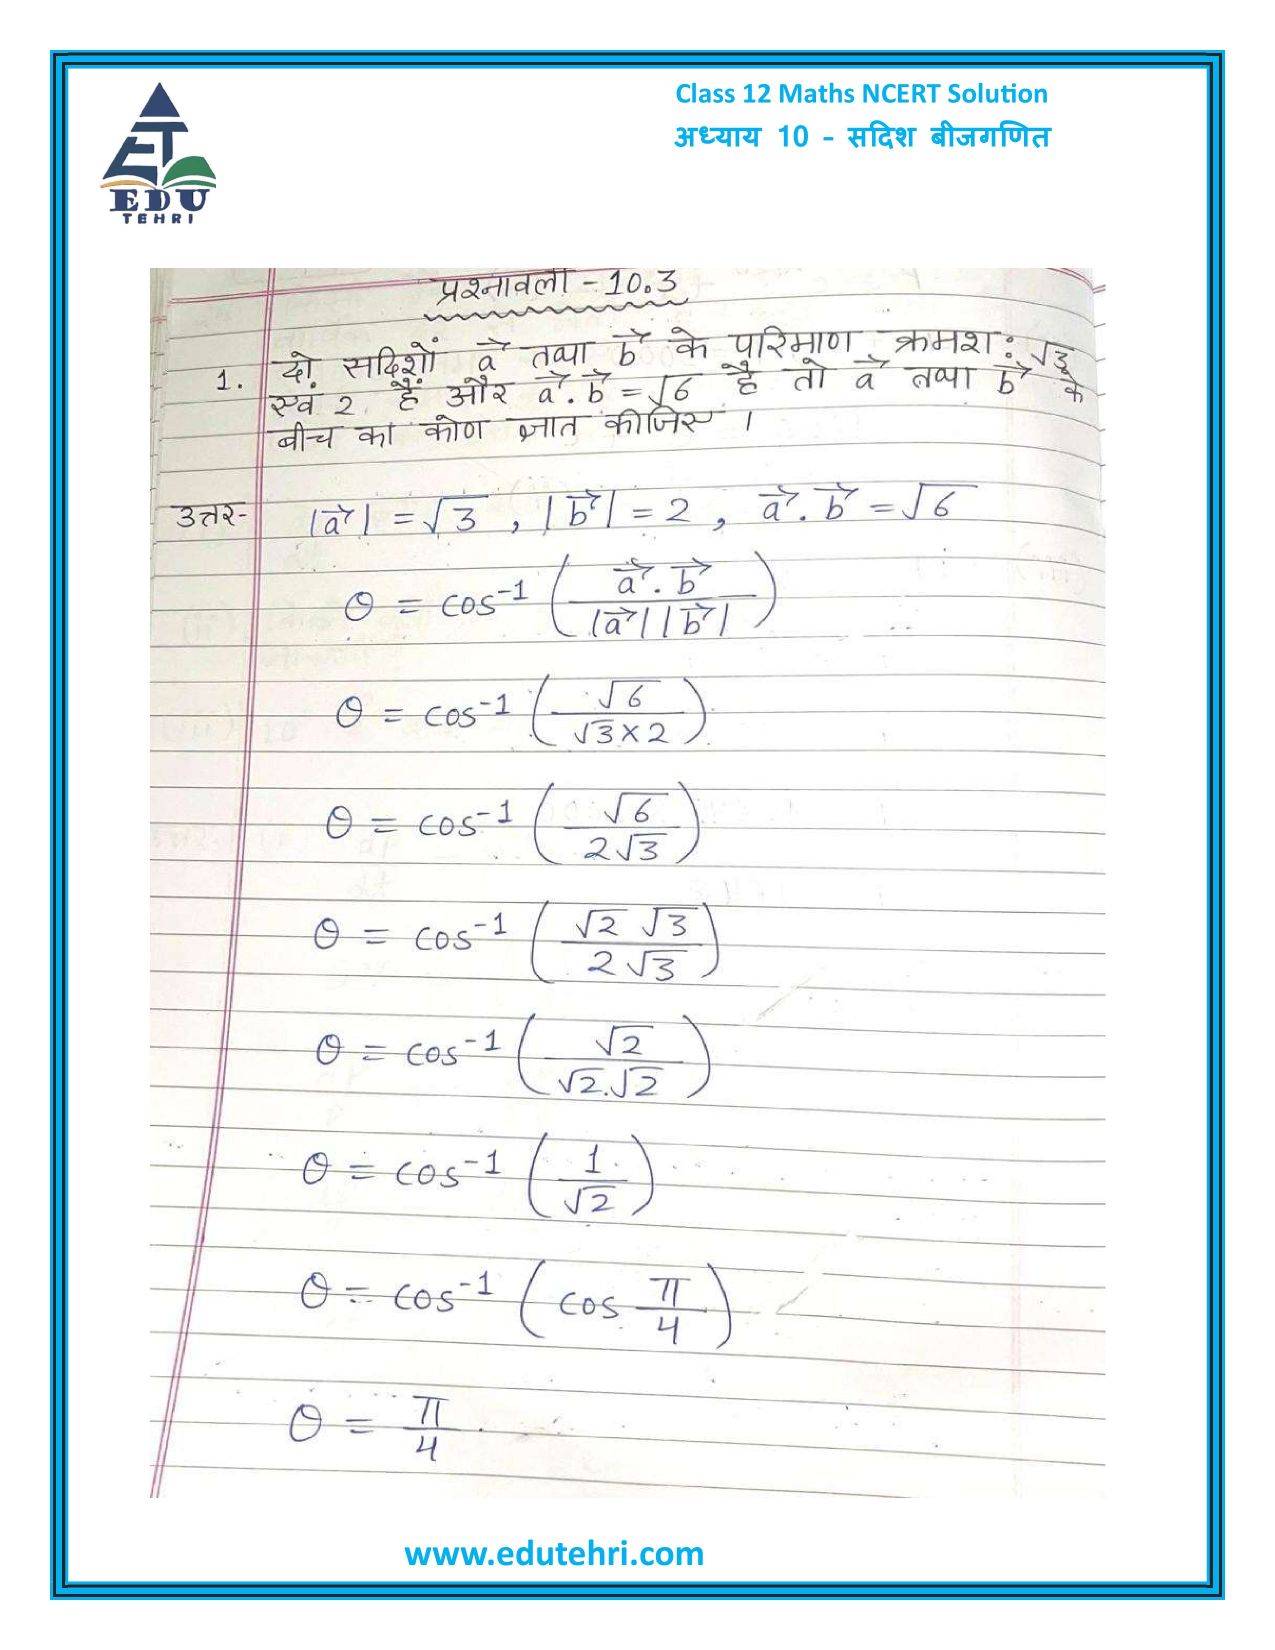 Class 12 Maths NCERT Solution
अध्याय 10 - सदिश बीजगणित
EDU
TEHRI
प्रश्नावली - 10.3
1. दो सदिशों a⃗ तथा b⃗ के परिमाण क्रमश: √3
एवं 2 हैं और a⃗.b⃗ = √6 है तो a⃗ तथा b⃗ के
बीच का कोण ज्ञात कीजिए ।
उत्तर- |a⃗| = √3 , |b⃗| = 2 , a⃗.b⃗ = √6
θ = cos⁻¹ (a⃗.b⃗ / |a⃗||b⃗|)
θ = cos⁻¹ (√6 / √3×2)
θ = cos⁻¹ (√6 / 2√3)
θ = cos⁻¹ (√2 √3 / 2√3)
θ = cos⁻¹ (√2 / √2.√2)
θ = cos⁻¹ (1 / √2)
θ = cos⁻¹ (cos π/4)
θ = π/4
www.edutehri.com